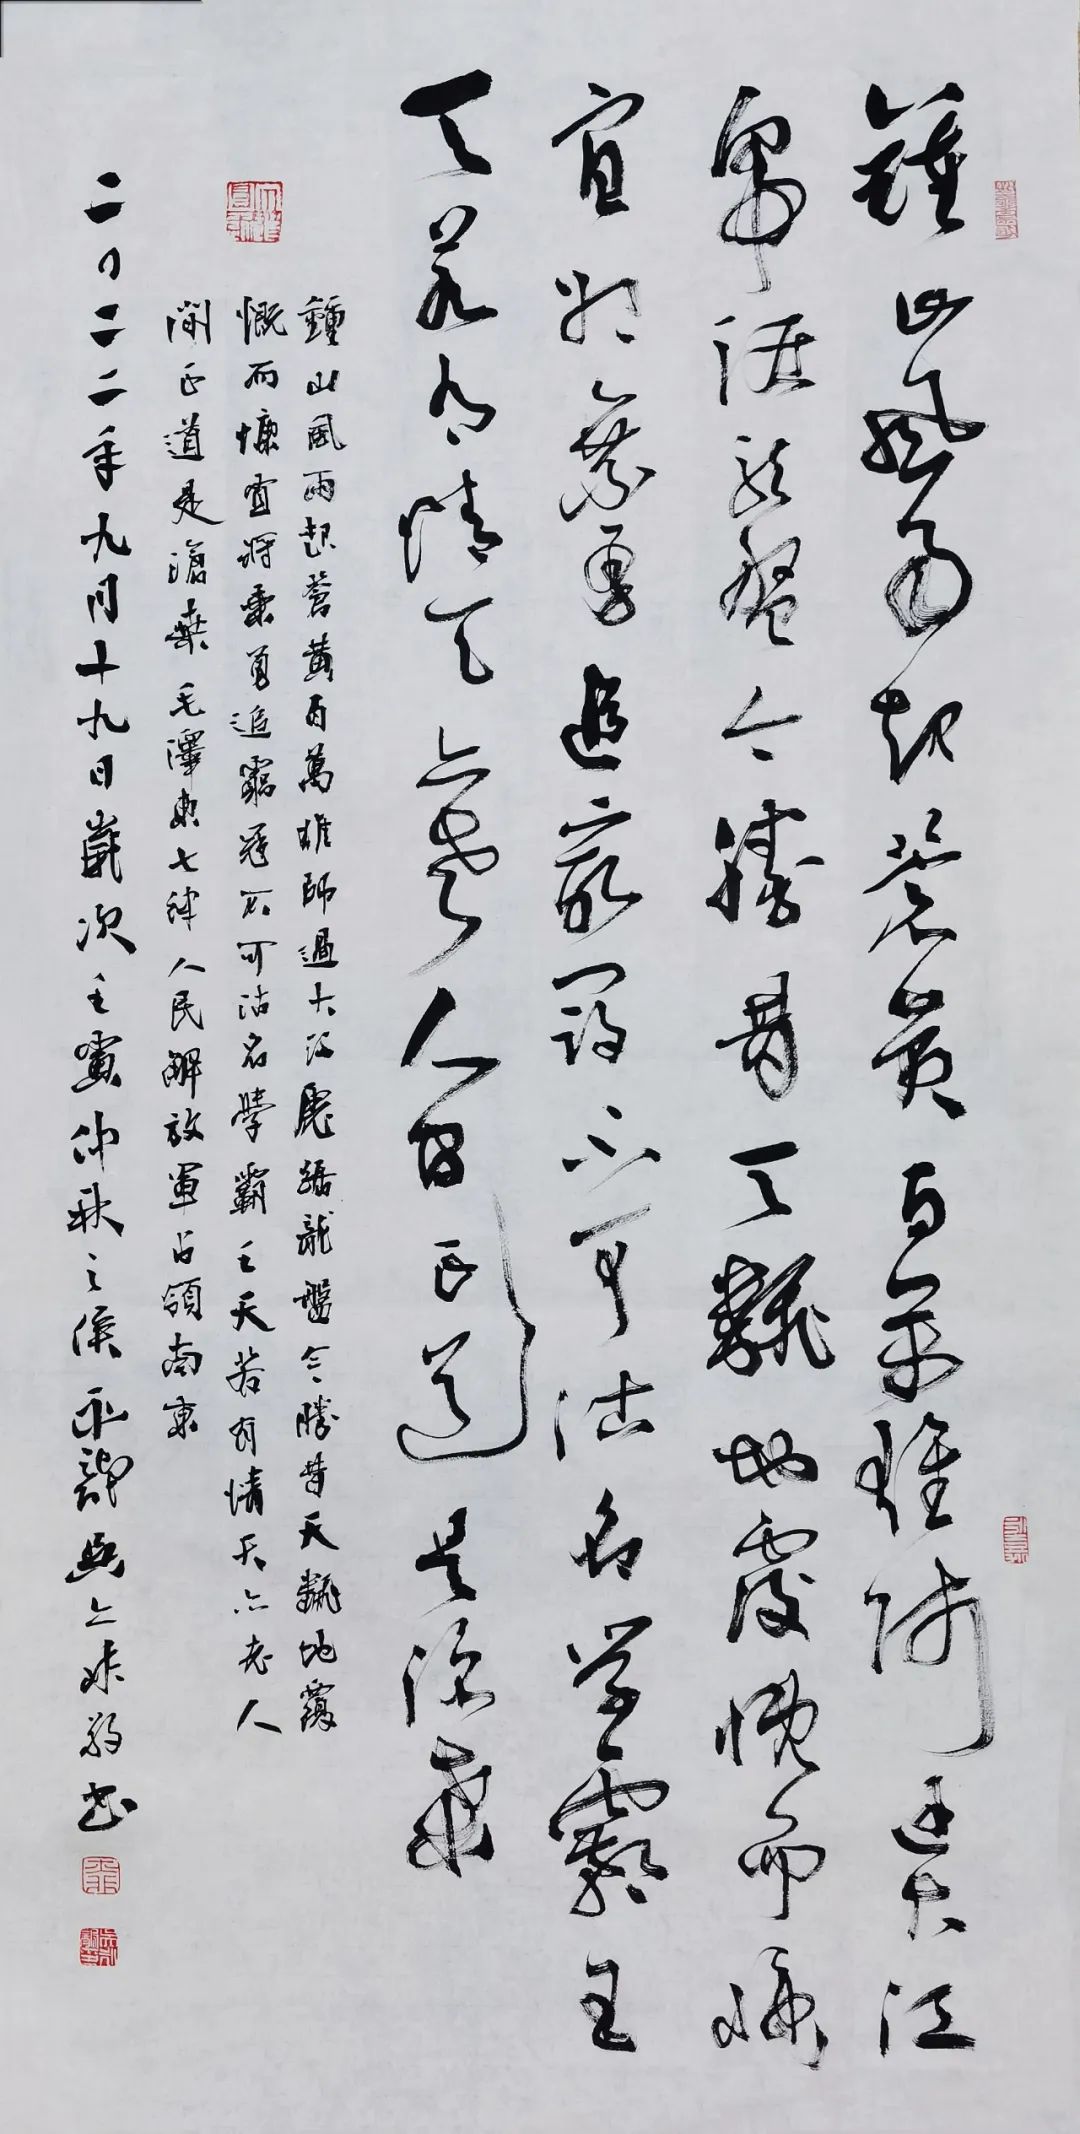 鍾山風雨起蒼黄百萬雄師過大江
虎踞龍盤今勝昔天翻地覆慨而慷
宜將乘勇追窮寇不可沽名學霸王
天若有情天亦老人間正道是滄桑
鍾山風雨起蒼黄百萬雄師過大江虎踞龍盤今勝昔天翻地覆
慨而慷宜將乘勇追窮寇不可沽名學霸王天若有情天亦老人
間正道是滄桑毛澤東七律人民解放軍占領南京
二〇二二年九月十九日歲次壬寅仲秋之候